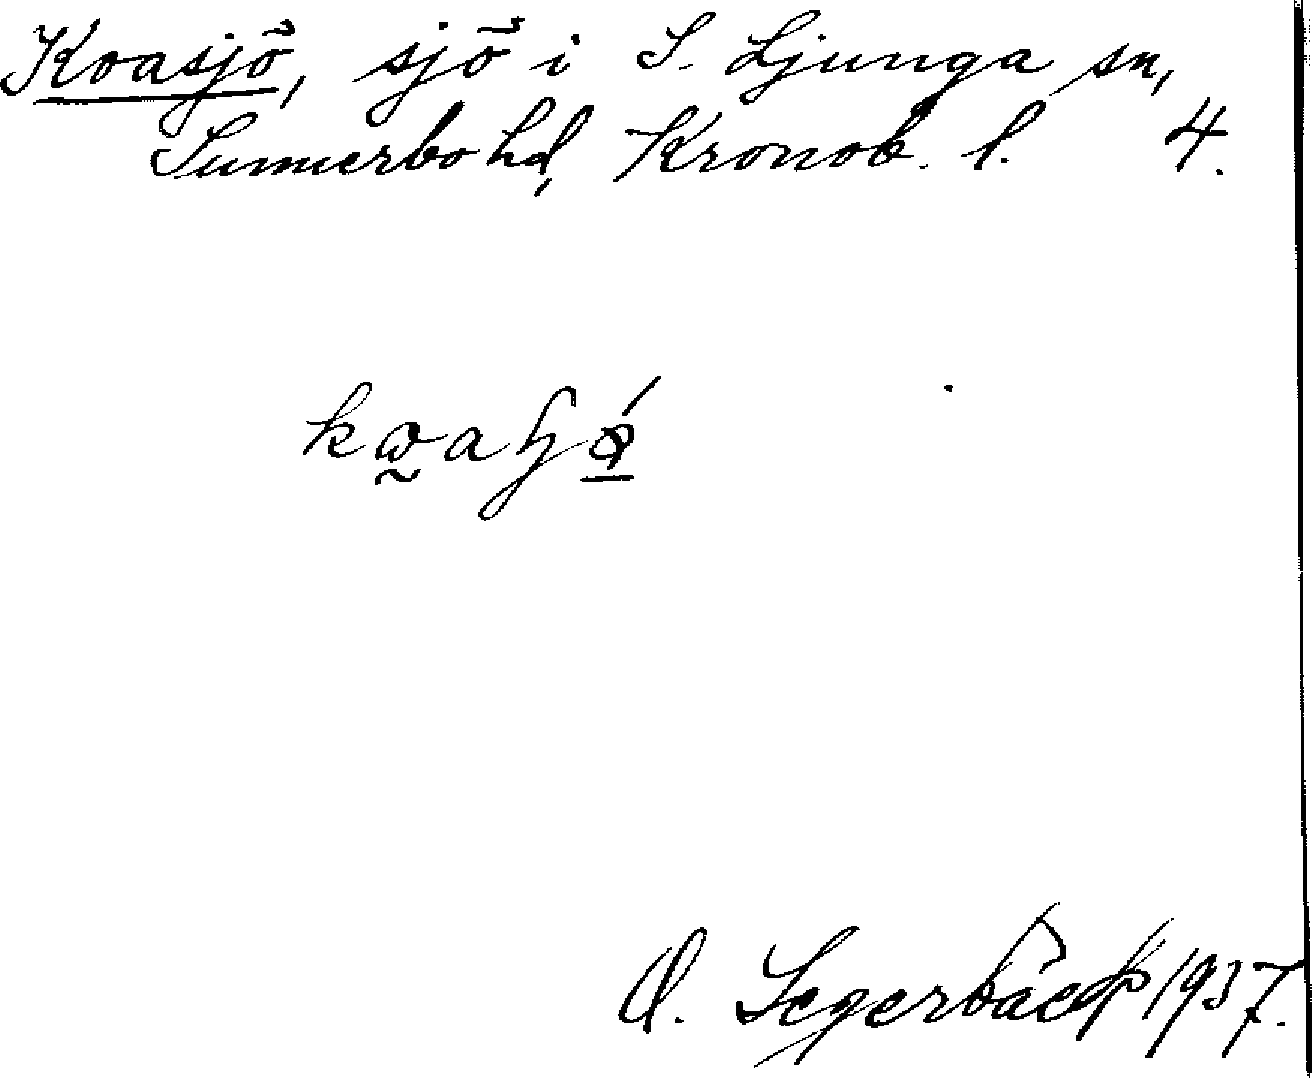 Kvasjö, sjö i S. Ljunga sn,
Sunnerbo hd, Kronob. l. 4.
O. Segerbäck 1937.